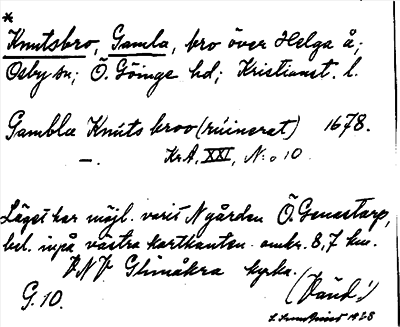 *
Knutsbro, Gamla, bro över Helga å;
Osby sn; Ö. Göinge hd; Kristianst. l.
Gambla Knuts broo (rúinerat) 1678.
–. KrA, XXI, N:o 10.
Läget har möjl. varit N gården Ö. Genastorp,
bel. inpå västra kartkanten omkr. 8,7 km.
VNV Glimåkra kyrka.
G. 10. (Vänd!)
1928